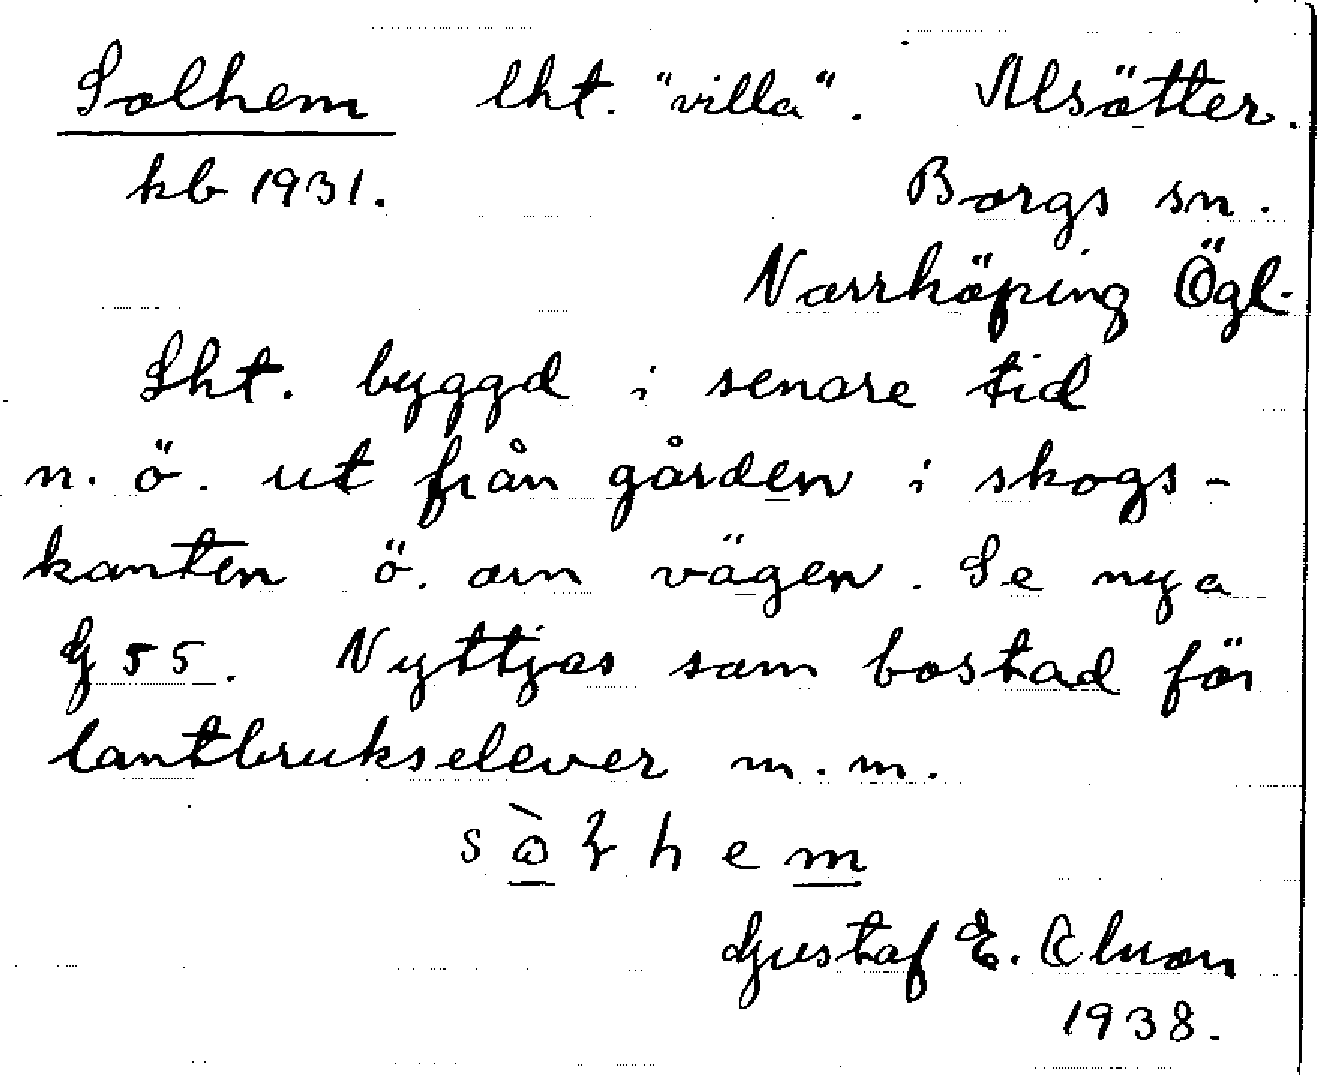 Solhem lht. "villa". Alsätter.
kb 1931. Borgs sn.
Norrköping Ögl.
Lht. byggd i senare tid
n. ö. ut från gården i skogs-
kanten ö. om vägen. Se nya
G 55. Nyttjas som bostad för
lantbrukselever m. m.
Gustaf E. Olson
1938.